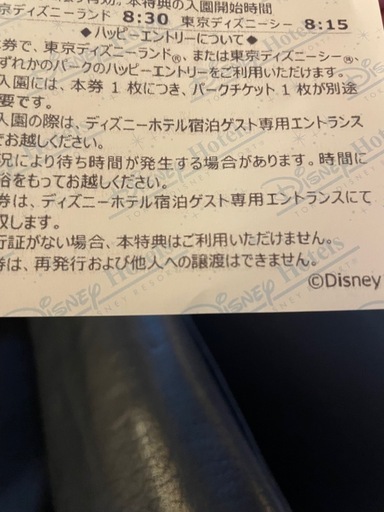 有効。本特典の入園開始時間
京ディズニーランド 8:30 東京ディズニーシー 8:15
◆ハッピーエントリーについて◆
券で、東京ディズニーランド®、または東京ディズニーシー®、
ずれかのパークのハッピーエントリーをご利用いただけます。
入園には、本券 1 枚につき、パークチケット 1 枚が別途
要です。
入園の際は、ディズニーホテル宿泊ゲスト専用エントランス
でお越しください。
況により待ち時間が発生する場合があります。時間に
裕をもってお越しください。
券は、ディズニーホテル宿泊ゲスト専用エントランスにて
収します。
行証がない場合、本特典はご利用いただけません。
券は、再発行および他人への譲渡はできません。
©Disney